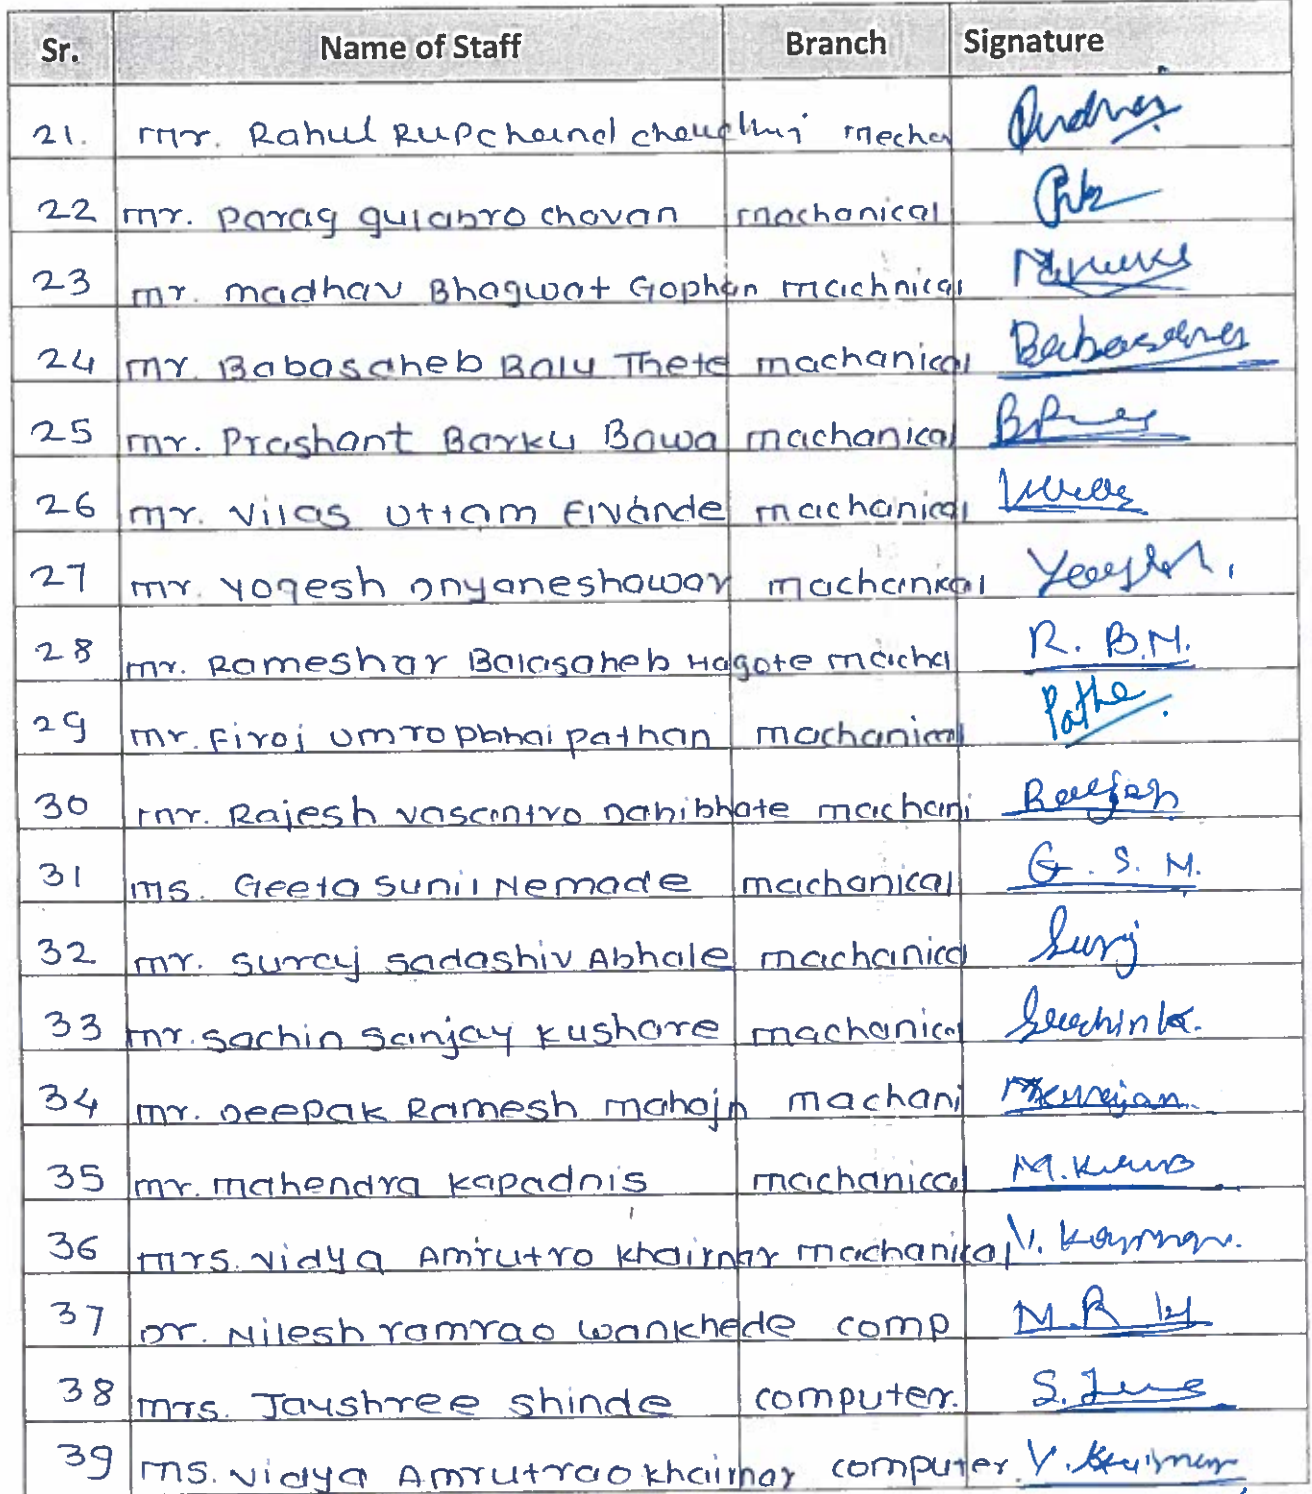 Sr. Name of Staff Branch Signature
21. mr. Rahul Rupchand choudhuri mecha
22 mr. parag gulabro chovan machanical
23 mr. madhav Bhagwat Gophan machnical
24 mr. Babasaheb Balu Thete machanical Babasaheb
25 mr. Prashant Barku Bawa machanical
26 mr. Vilas Uttam Elvande machanical
27 mr. Yogesh Dnyaneshawar machanical Yogesh
28 mr. Rameshar Balasaheb Hagote macha R. B.H.
29 mr. Firoj umropbhai pathan machanical Pathe
30 mr. Rajesh vasantro Dahibhate machani Rajesh
31 ms. Geeta Sunil Nemade machanical G. S. N.
32 mr. suraj sadashiv Abhale machanical Suraj
33 mr. sachin sanjay kushare machanical Sachin k.
34 mr. Deepak Ramesh mahajn machani
35 mr. mahendra kapadnis machanical
36 mrs. vidya Amrutro khairnar machanical
37 Dr. Nilesh ramrao wankhede comp
38 mrs. Jayshree shinde computer.
39 ms. vidya Amrutrao khairnar computer